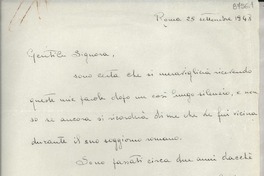 Roma 25 settembre 1948
Gentile Signora,
sono certa che si meraviglierà ricevendo
queste mie parole dopo un così lungo silenzio, e non
so se ancora si ricorderà di me che le fui vicina
durante il suo soggiorno romano.
Sono passati circa due anni dacché